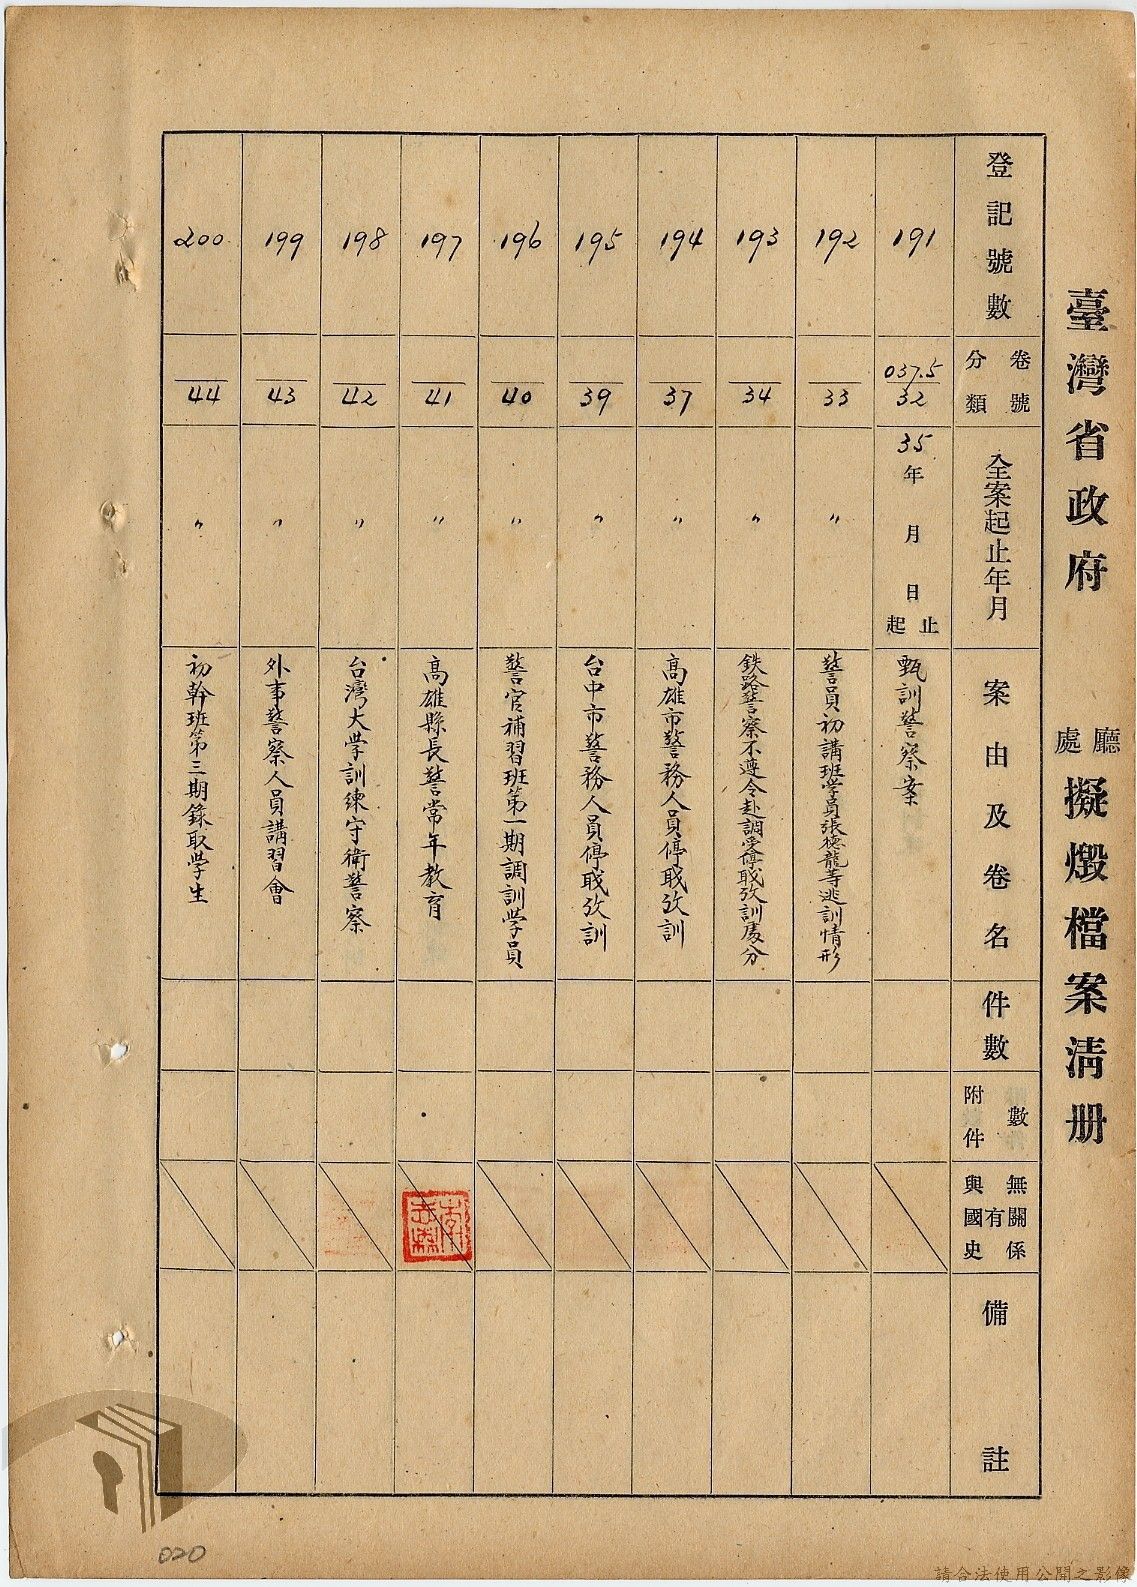 臺灣省政府 廳處 擬燬檔案清册
登記號數
分類 卷號
全案起止年月
案由及卷名
件數
附件數
與國史有無關係
備註
191
037.5
32
35年 月 日 起止
甄訓警察案
192
33
〃
警員初講班学員張德龍等逃訓情形
193
34
〃
鉄路警察不遵令赴調受停職攷訓處分
194
37
〃
高雄市警務人員停職攷訓
195
39
〃
台中市警務人員停職攷訓
196
40
〃
警官補習班第一期調訓学員
197
41
〃
高雄縣長警常年教育
198
42
〃
台灣大学訓練守衛警察
199
43
〃
外事警察人員講習會
200
44
〃
初幹班第三期錄取学生
020
請合法使用公開之影像